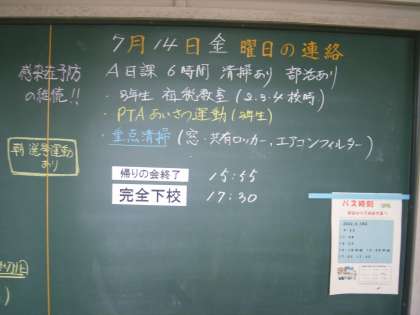 7月14日金曜日の連絡
感染症予防
の継続!!
A日課 6時間 清掃あり 部活あり
・3年生 租税教室(2.3.4校時)
・PTAあいさつ運動(2年生)
・重点清掃(窓・共有ロッカー、エアコンフィルター)
朝 選挙運動
あり
帰りの会終了 15:55
完全下校 17:30
バス時刻